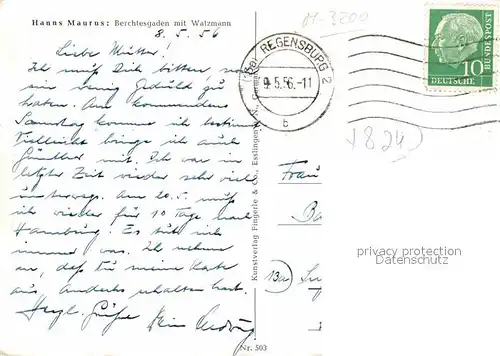 Hanns Maurus: Berchtesgaden mit Watzmann
8. 5. 56
Liebe Mutter!
Ich muß Dich bitten, noch
ein wenig Geduld zu
haben. Am kommenden
Samstag komme ich bestimmt
Vielleicht bringe ich auch
Günther mit. Ich war in
letzter Zeit wieder sehr viel
unterwegs. Am 20.5. muß
ich wieder für 10 Tage nach
Hamburg. Es tut sich
immer was. Ich nehme
an, daß Du meine Karte
aus erhalten hast.
Herzl. Grüße Dein
Nr. 503
Kunstverlag Fingerle & Co., Esslingen a. N.
REGENSBURG 2
9.5.56.-11
b
M-3200
10
DEUTSCHE
BUNDESPOST
1824
Frau
13a
privacy protection
Datenschutz